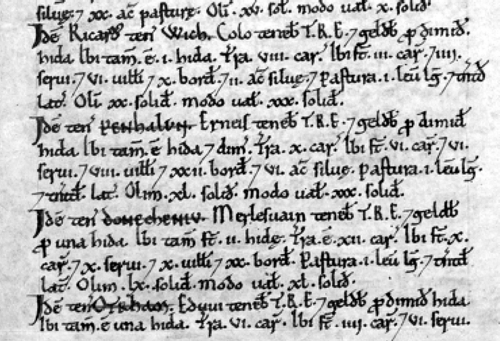 siluę ⁊ xx. ac̄ pasturę. Olī. xv. sol̄. modo ual̄. x. solid̄.
Idē Ricard̄ ten̄ Wich. Colo teneb̄ T.R.E. ⁊ geldb̄ ꝑ dimid̄
hida. Ibi tam̄. ē. i. hida. Tr̄a. viii. car̄. Ibi s̄t. iii. car̄. ⁊ iiii.
serui. ⁊ vi. uilłi ⁊ x. bord̄. ⁊ ii. ac̄ siluę. ⁊ Pastura. i. leū lḡ. ⁊ tn̄td̄
lat̄. Olī xx. solid̄. modo ual̄. xxx. solid̄.
Idē ten̄ PENHALUN. Erneis teneb̄ T.R.E. ⁊ geldb̄ ꝑ dimid̄
hida. Ibi tam̄. ē hida ⁊ dim̄. Tr̄a. x. car̄. Ibi s̄t. vi. car̄. ⁊ vi.
serui. ⁊ viii. uilłi ⁊ xxii. bord̄. ⁊ vi. ac̄ siluę. Pastura. i. leū lḡ.
⁊ tn̄td̄ lat̄. Olim. xl. solid̄. modo ual̄. xxx. solid̄.
Idē ten̄ DONECHENIV. Merlesuain teneb̄ T.R.E. ⁊ geldb̄
ꝑ una hida. Ibi tam̄ s̄t. ii. hidę. Tr̄a. ē. xii. car̄. Ibi s̄t. x.
car̄. ⁊ x. serui. ⁊ x. uilłi ⁊ xx. bord̄. Pastura. i. leū lḡ. ⁊ tn̄td̄
lat̄. Olim. lx. solid̄. modo ual̄. xl. solid̄.
Idē ten̄ OTRHAM. Eduui teneb̄ T.R.E. ⁊ geldb̄ ꝑ dimid̄ hida.
Ibi tam̄. ē una hida. Tr̄a. vi. car̄. Ibi s̄t. iiii. car̄. ⁊ vi. serui.